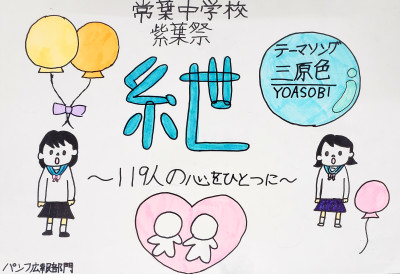 常葉中学校
紫葉祭
テーマソング
三原色
YOASOBI
紲
～119人の心をひとつに～
パンフ広報部門